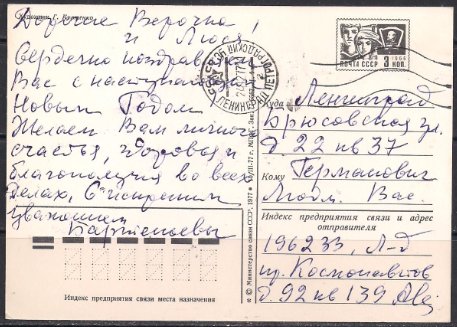 Дорогие Верочка
и Люся!
Сердечно поздравляем
Вас с наступающим
Новым Годом
Желаем Вам личного
счастья, здоровья и
благополучия во всех
делах. С искренним
уважением
Индекс предприятия связи места назначения
© Министерство связи СССР, 1977
ПОЧТА СССР 1966
3 КОП
ЛЕНИНГРАД
Куда Ленинград
Брюсовская ул.
д 22 кв 37
Кому Германович
Людм. Вас.
Индекс предприятия связи и адрес
отправителя
196233, Л-д
пр. Космонавтов
д. 92 кв 139